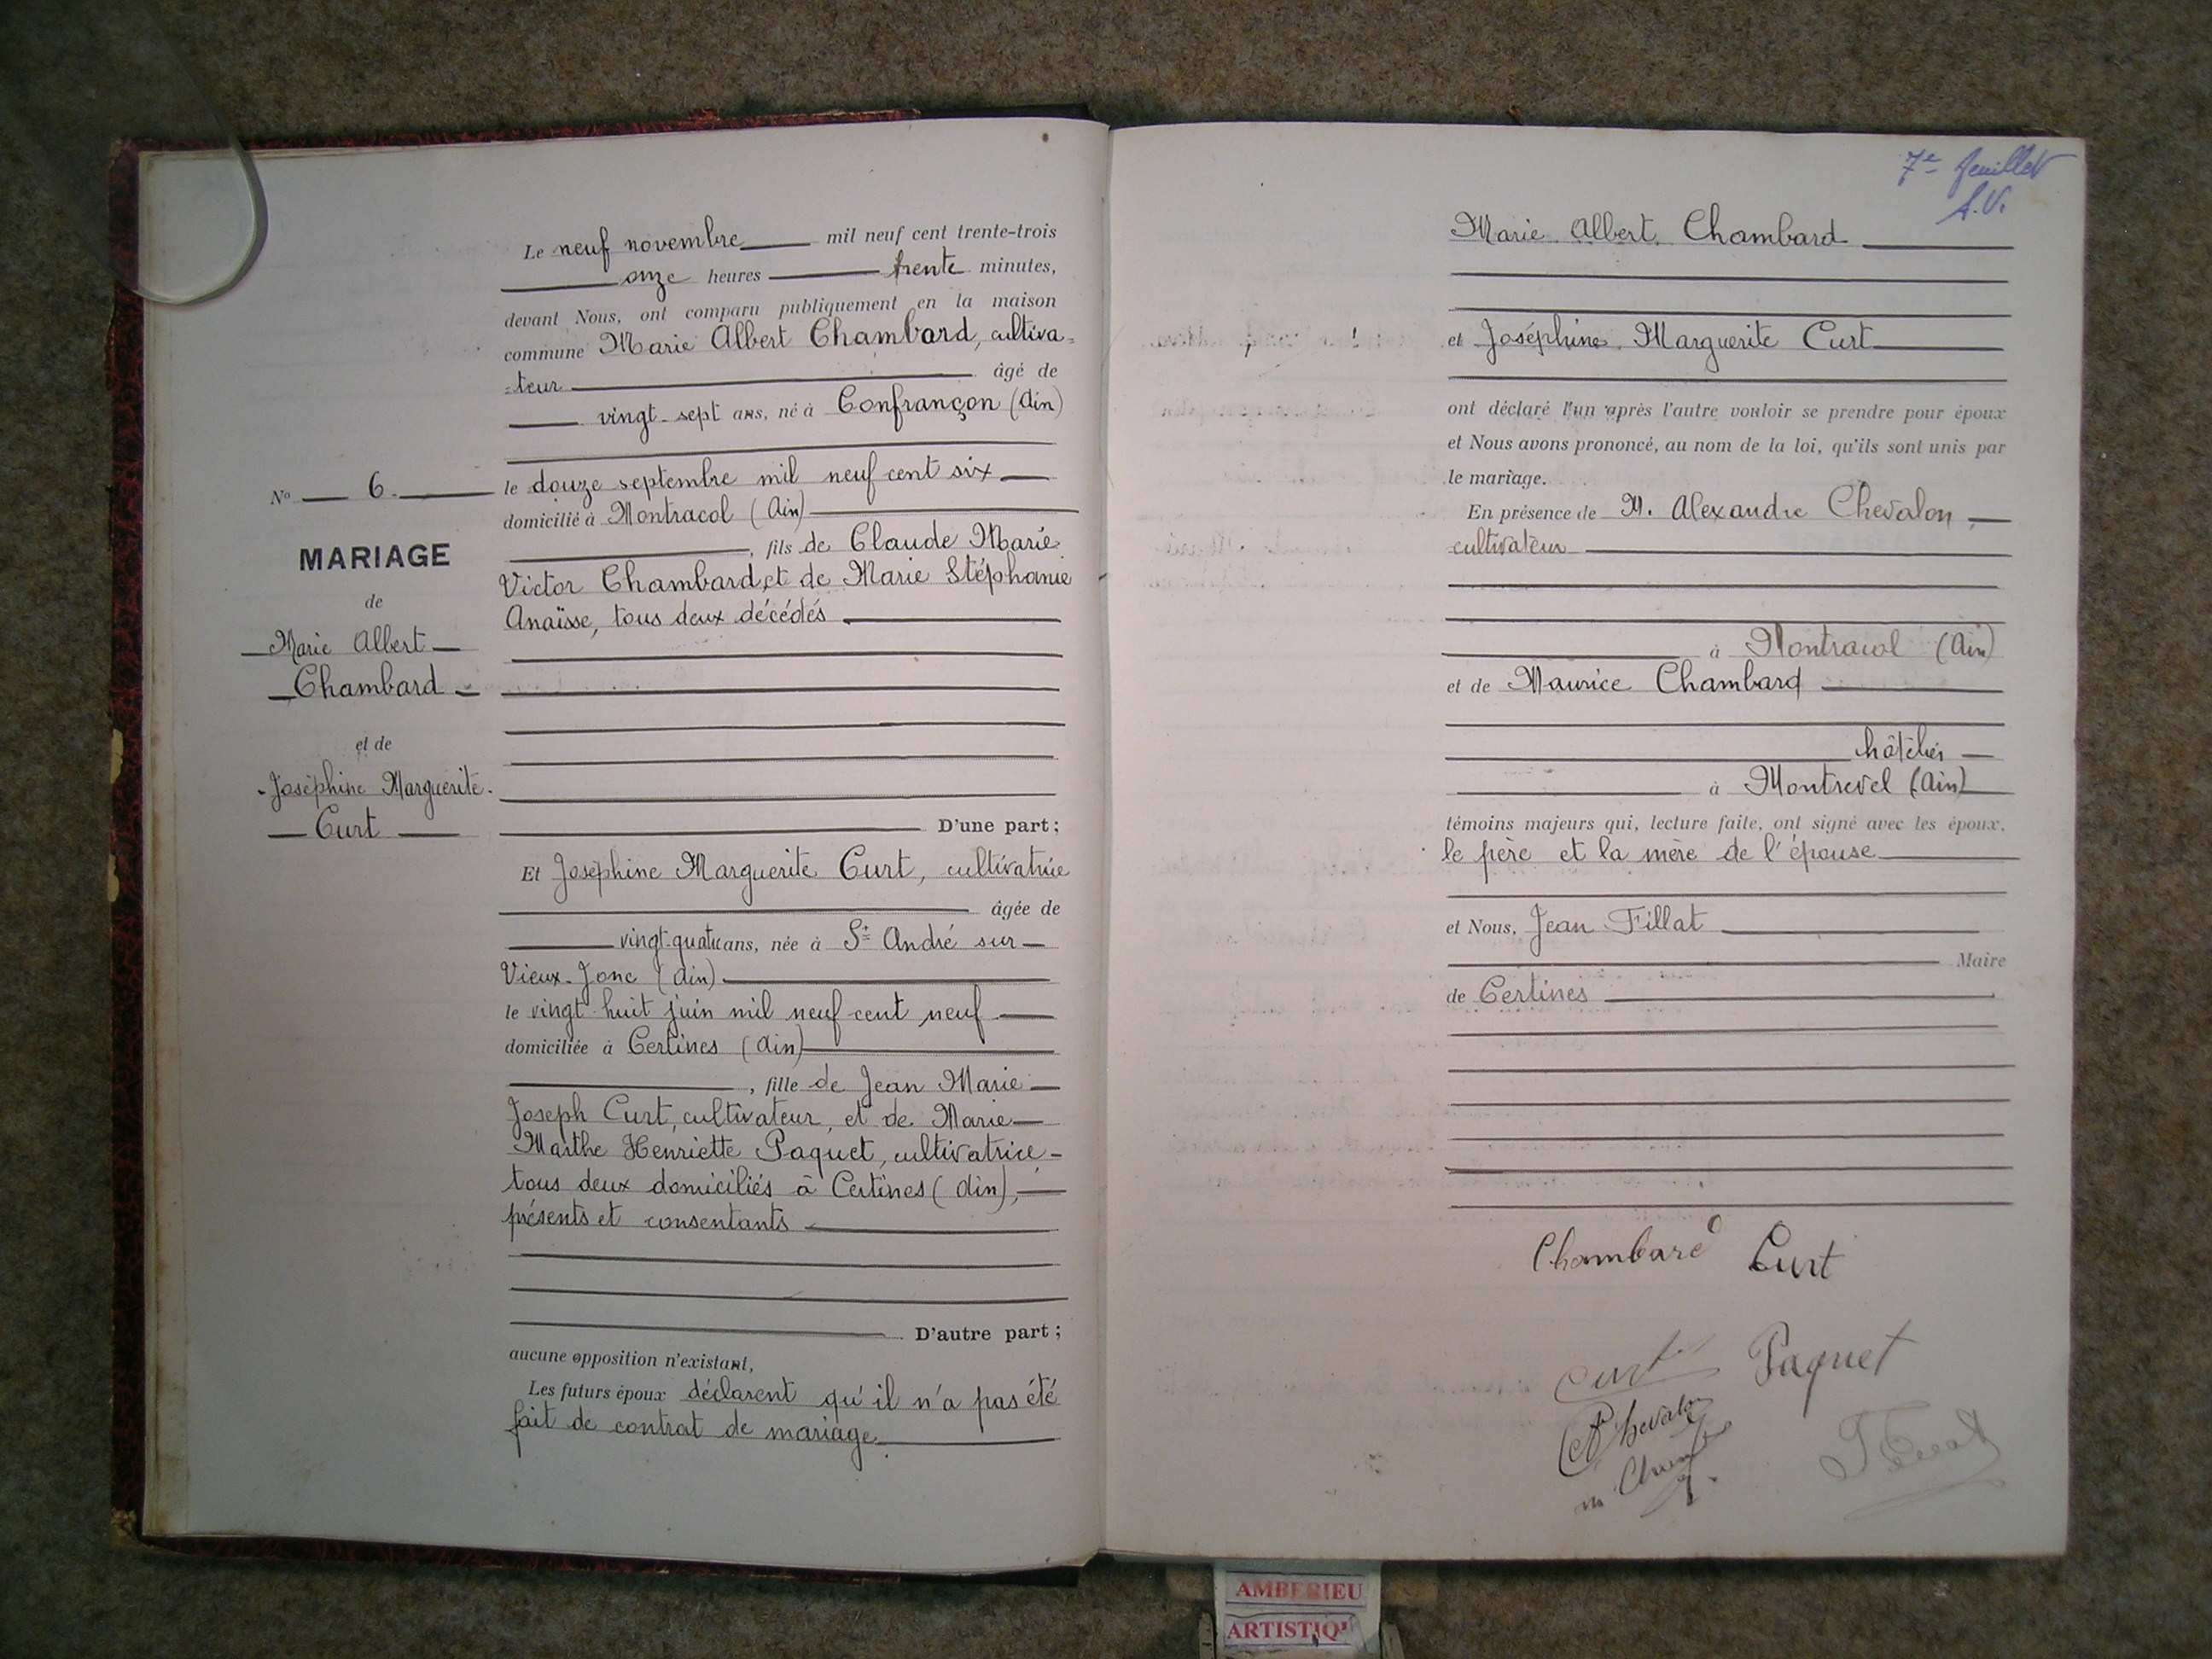 Le neuf novembre mil neuf cent trente-trois
onze heures trente minutes,
devant Nous, ont comparu publiquement en la maison
commune Marie Albert Chambard, cultiva-
-teur âgé de
vingt-sept ans, né à Confrançon (Ain)
le douze septembre mil neuf cent six
domicilié à Montracol (Ain)
, fils de Claude Marie
Victor Chambard, et de Marie Stéphanie
Anaïsse, tous deux décédés
D'une part ;
Et Joséphine Marguerite Curt, cultivatrice
âgée de
vingt-quatre ans, née à St André sur
Vieux-Jonc (Ain)
le vingt huit juin mil neuf cent neuf
domiciliée à Certines (Ain)
, fille de Jean Marie
Joseph Curt, cultivateur, et de Marie
Marthe Henriette Paquet, cultivatrice,
tous deux domiciliés à Certines (Ain),
présents et consentants
D'autre part ;
aucune opposition n'existant,
Les futurs époux déclarent qu'il n'a pas été
fait de contrat de mariage.
No 6.
MARIAGE
de
Marie Albert
Chambard
et de
Joséphine Marguerite
Curt
7e feuillet
A.V.
Marie Albert Chambard
et Joséphine Marguerite Curt
ont déclaré l'un après l'autre vouloir se prendre pour époux
et Nous avons prononcé, au nom de la loi, qu'ils sont unis par
le mariage.
En présence de M. Alexandre Chevalon,
cultivateur
à Montracol (Ain)
et de Maurice Chambard
hôtelier
à Montrevel (Ain)
témoins majeurs qui, lecture faite, ont signé avec les époux,
le père et la mère de l'épouse
et Nous, Jean Fillat
Maire
de Certines
Chambard Curt
Curt Paquet
Chevalon
AMBERIEU
ARTISTIQ